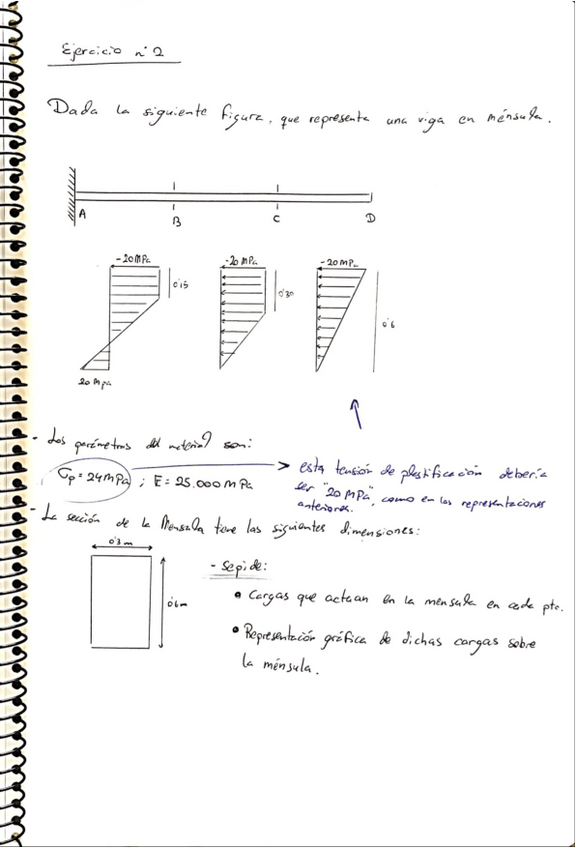 Ejercicio nº 2
Dada la siguiente figura, que representa una viga en ménsula.
A B C D
-20MPa -20MPa -20MPa
0'15 0'30 0'6
20 Mpa
- Los parámetros del material son:
σp = 24MPa ; E = 25.000 MPa
esta tensión de plastificación debería
ser "20 MPa", como en las representaciones
anteriores.
- La sección de la Ménsula tiene las siguientes dimensiones:
0'3 m
0'6m
- Se pide:
• Cargas que actuan en la ménsula en cada pto.
• Representación gráfica de dichas cargas sobre
la ménsula.